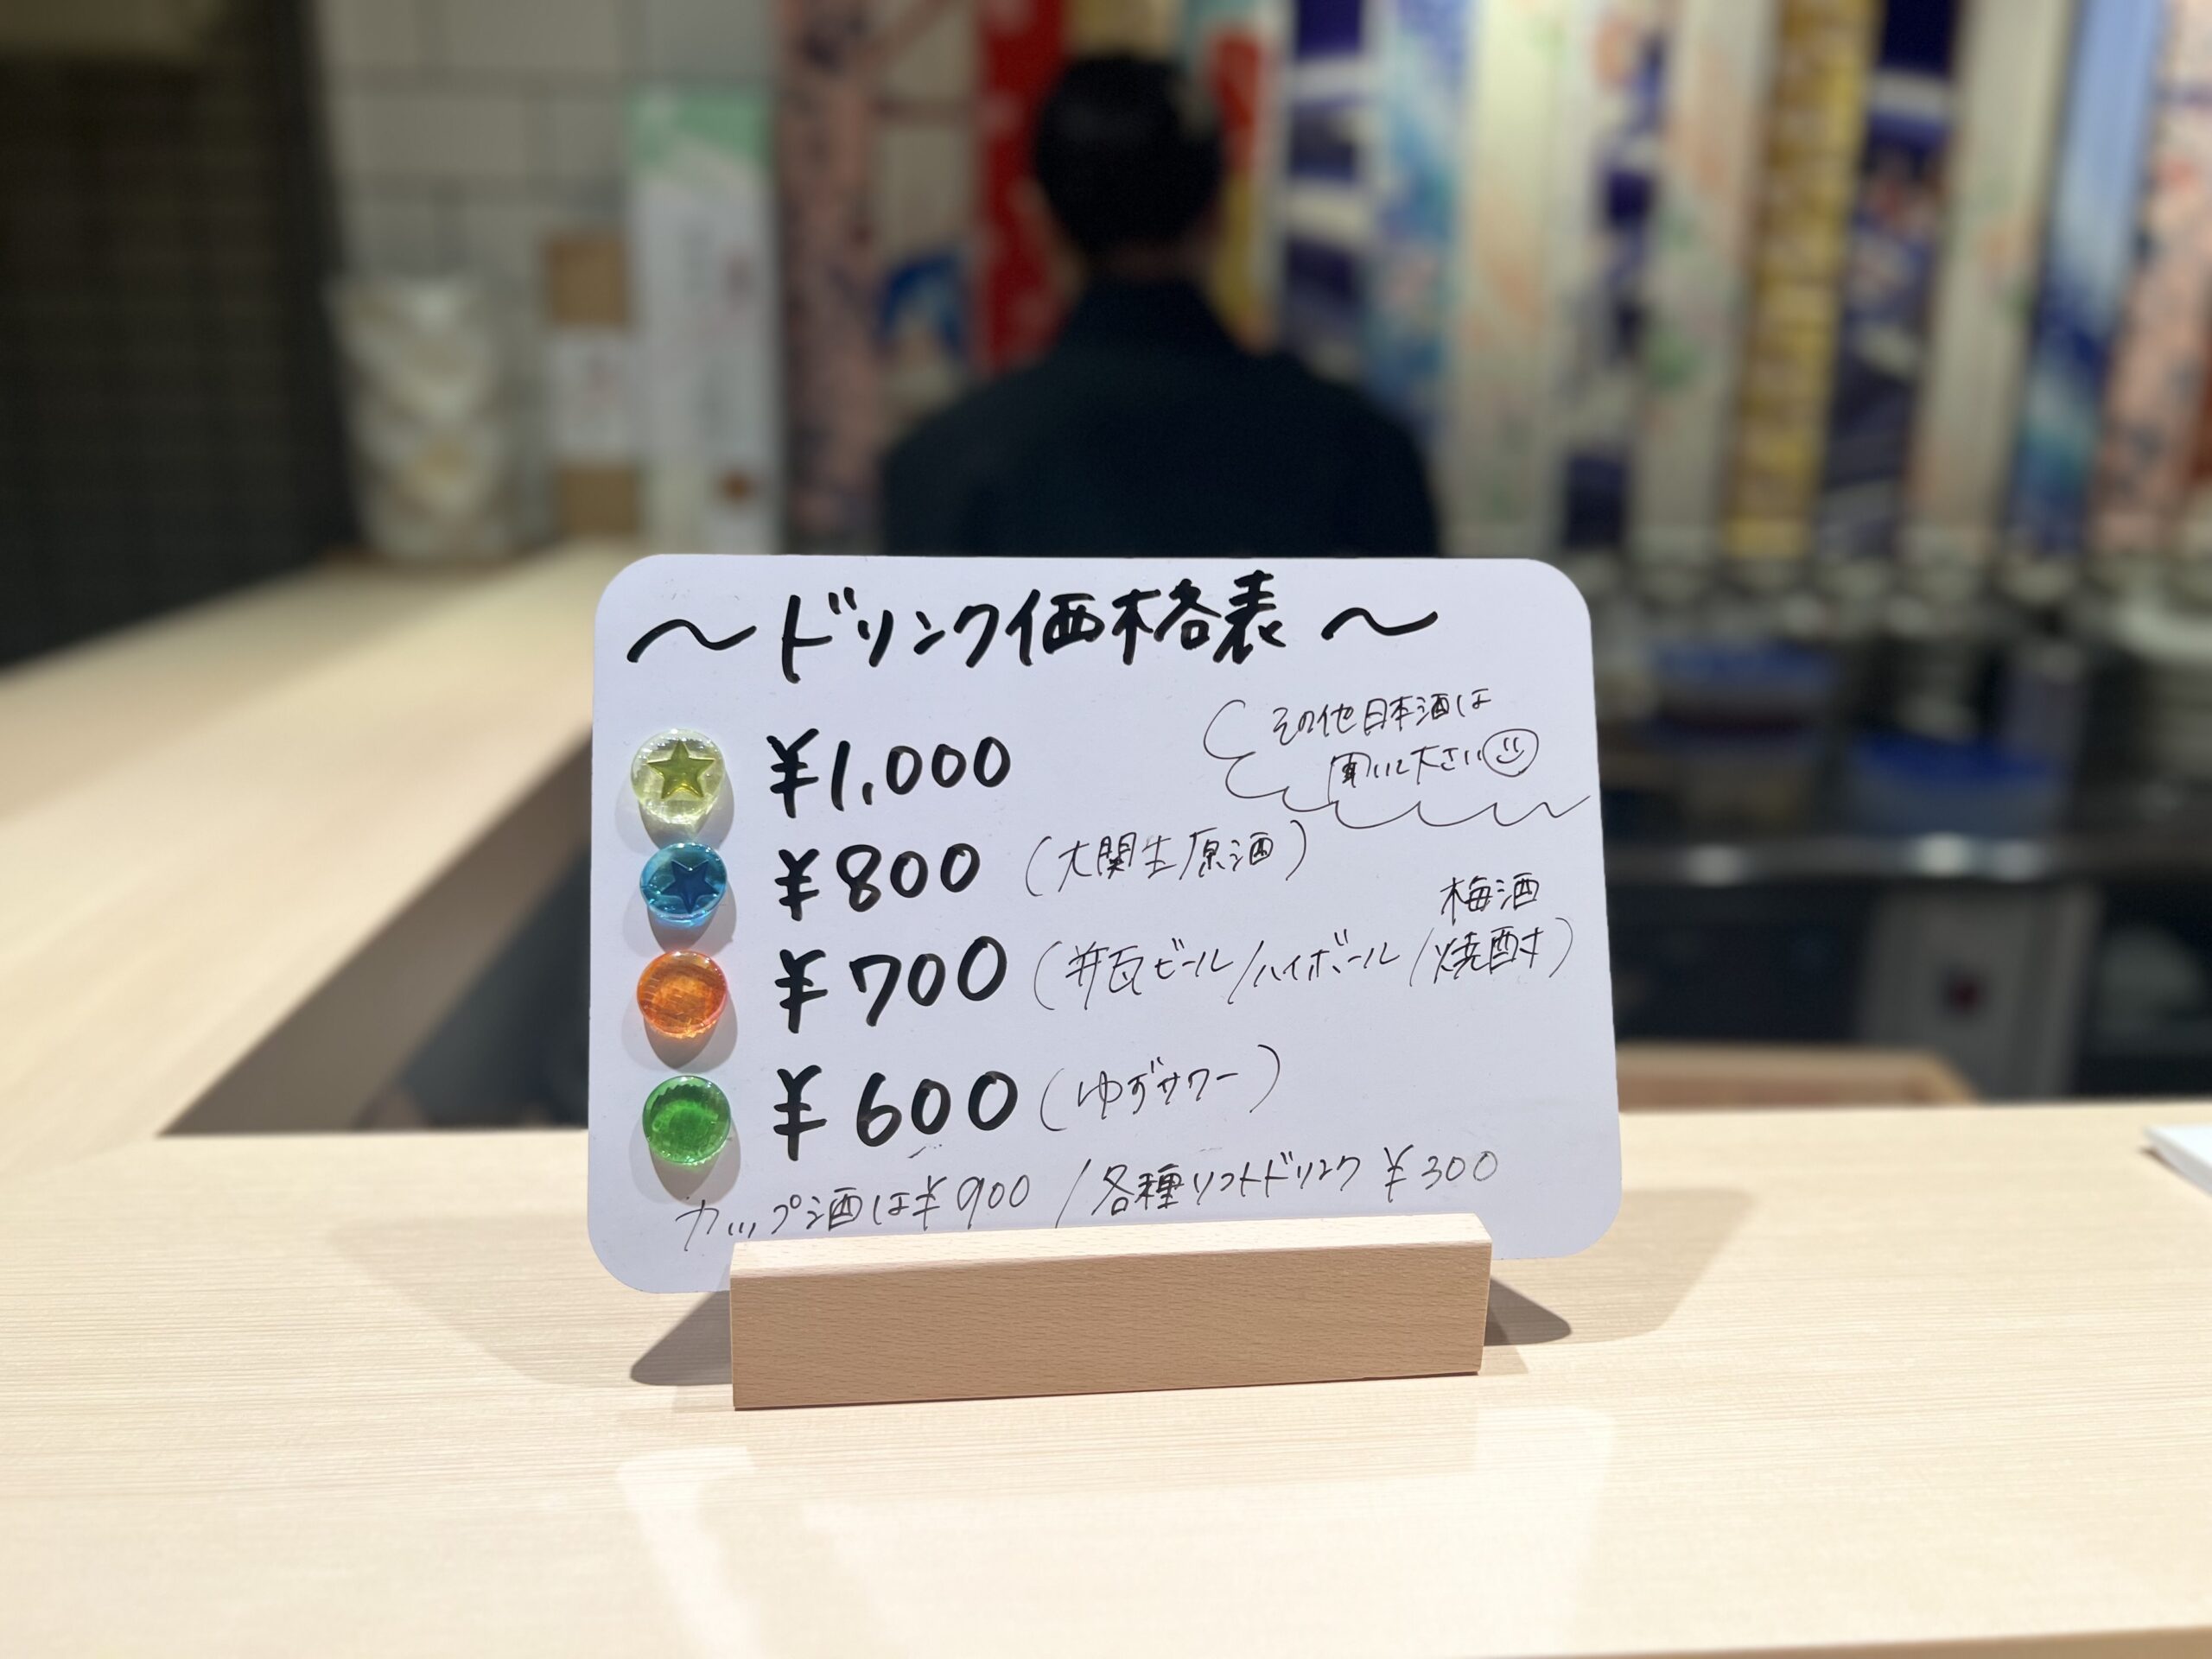 ～ドリンク価格表～
その他日本酒は
聞いて下さい
¥1,000
¥800 (大関生原酒)
梅酒
¥700 (瓶ビール/ハイボール/焼酎)
¥600 (ゆずサワー)
カップ酒は¥900 / 各種ソフトドリンク ¥300